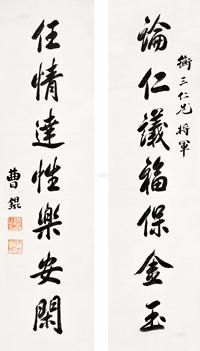 衡三仁兄将軍
論仁議福保金玉
任情達性樂安閑
曹錕